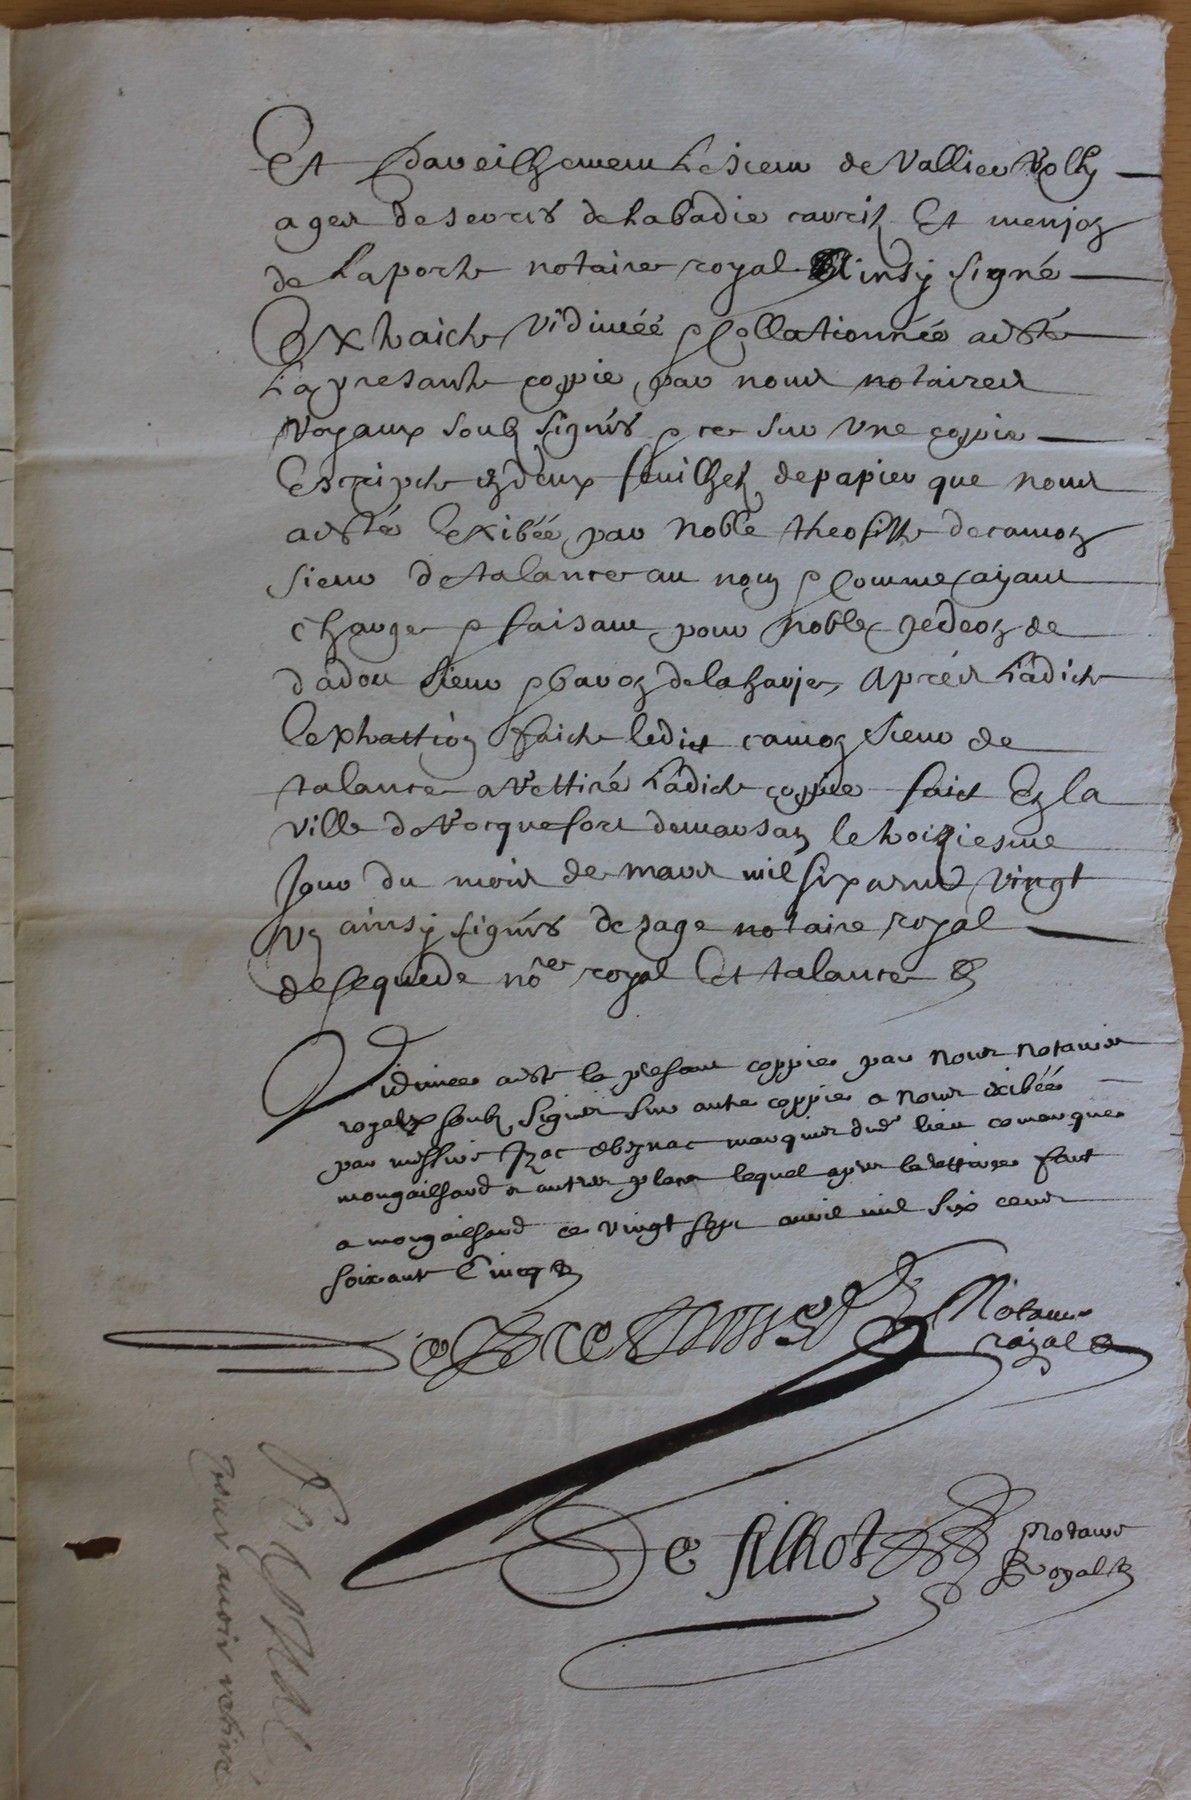 Et pareilhemem le sieur de Vallier
ager de sevris de labadie Et menjon
de Laporte notaire royal Ainsy signé
Extraicte Vidimée et Collationnée a esté
La presante coppie, par nous notaires
Royaux soubz signés et ce sur Une coppie
Escripte en deux feuilhez de papier que nous
a esté Exibée par Noble theofille de camon
sieur de talance au nom et comme ayant
charge et faisant pour Noble jedeon de
dadou sieur et baron de laharje, Apres Ladicte
Exhattion faicte ledict camon sieur de
talance a Rettiré Ladicte coppie faict En la
Ville de Rocquefort demarsan le troiziesme
Jour du mois de mars mil six cent Vingt
Un ainsy signés desage notaire royal
de sequede nore royal Et talance
Vidimee a este la presant coppie par nous notaires
royalx soubz signes sur autre coppie a nous exibée
par messire Izac marquis dud lieu
mongailhard et autres places lequel apres la rettiree faict
a mongailhard ce vingt sept avril mil six cens
soixante Cincq
Notaire
royal
De filhot Notaire
Royal
pour avoir retiré